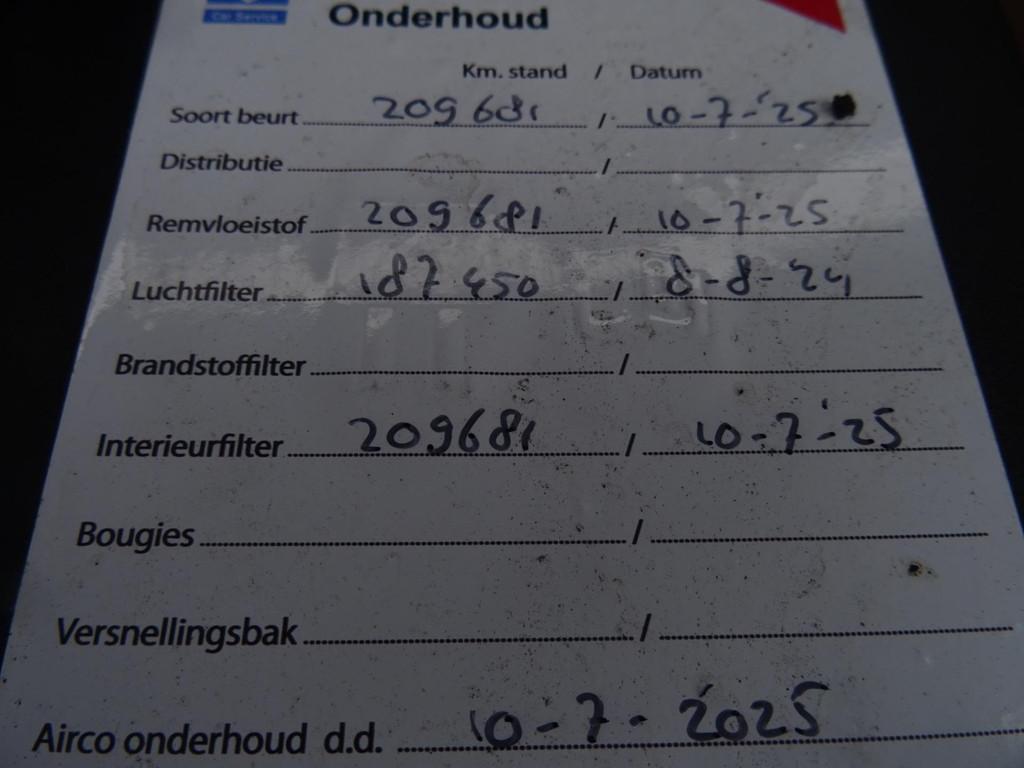 Car Service
Onderhoud
Km. stand / Datum
Soort beurt 209681 / 10-7-'25
Distributie /
Remvloeistof 209681 / 10-7-'25
Luchtfilter 187450 / 8-8-'24
Brandstoffilter /
Interieurfilter 209681 / 10-7-'25
Bougies /
Versnellingsbak /
Airco onderhoud d.d. 10-7-2025